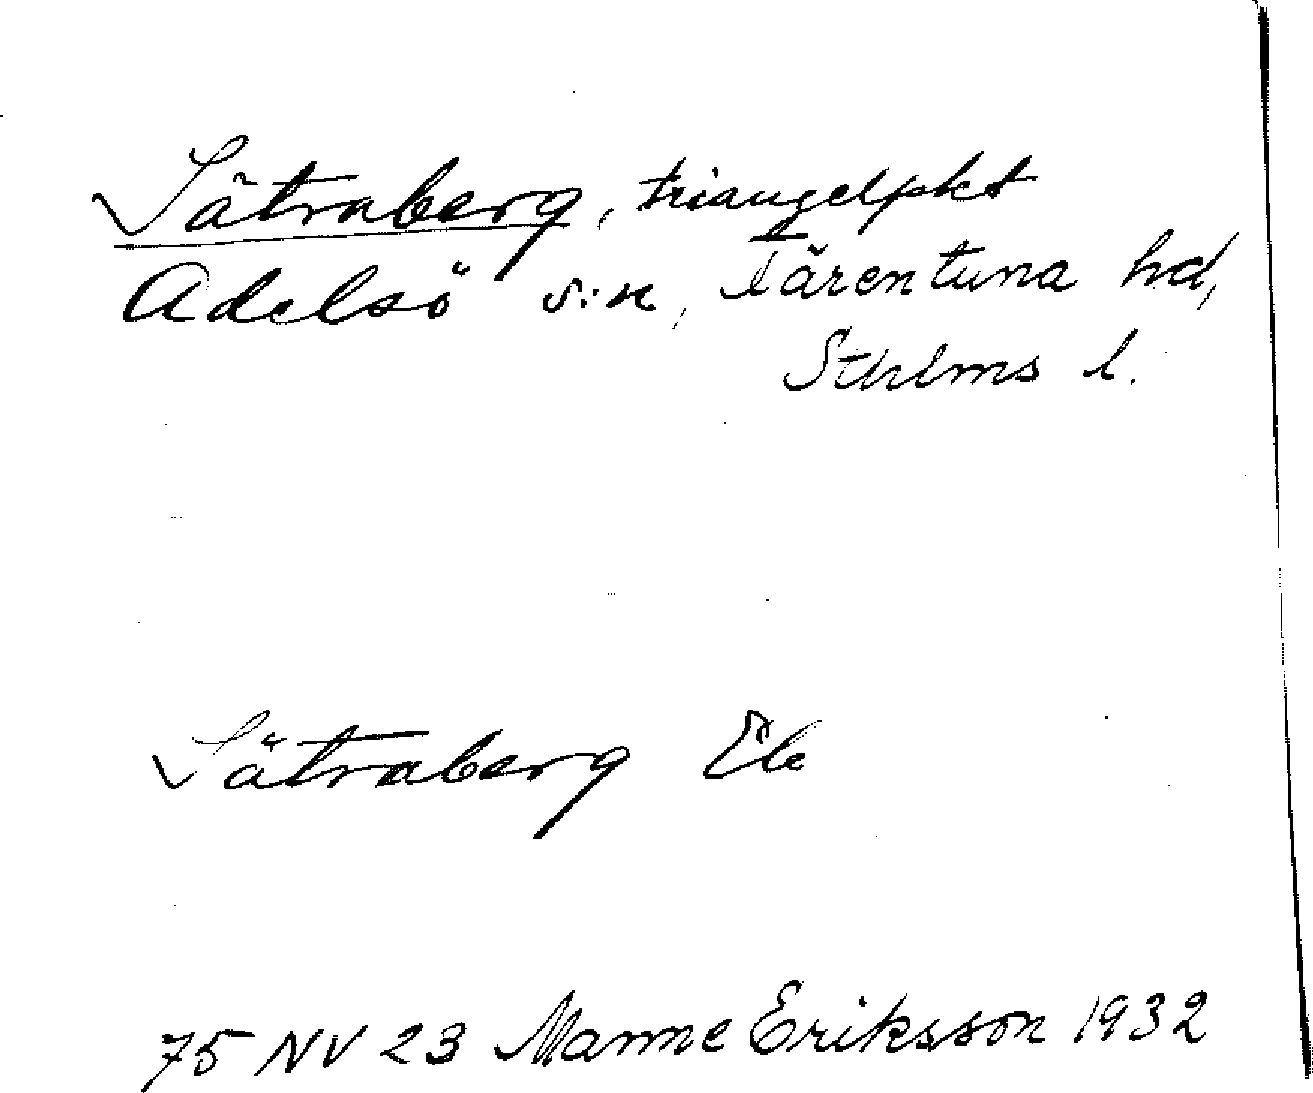 Sätraberg, triangelpkt
Adelsö s:n, Färentuna hd,
Sthlms l.
Sätraberg Eb
75 NV 23 Manne Eriksson 1932